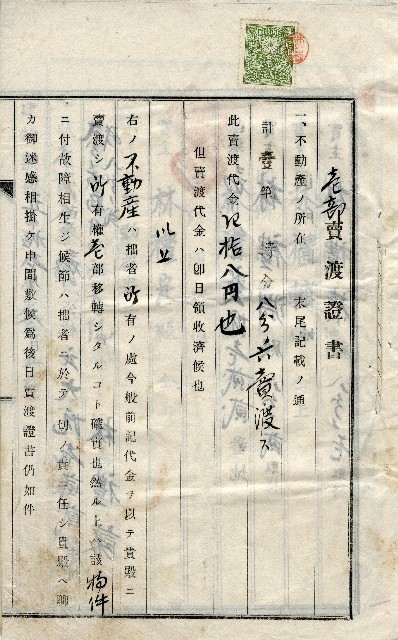 壱部賣渡證書
一、不動産ノ所在 末尾記載ノ通
計壹筆 持分八分ノ六賣渡ス
此賣渡代金 拾八円也
但賣渡代金ハ卽日領收濟候也
以上
右ノ不動産ハ拙者所有ノ處今般前記代金ヲ以テ貴殿ニ
賣渡シ所有權壱部移轉シタルコト確實也然ル上ハ該物件
ニ付故障相生シ候節ハ拙者ニ於テ一切ノ責ニ任シ貴殿ヘ聊
カ御迷惑相掛ケ申間敷候爲後日賣渡證書仍如件